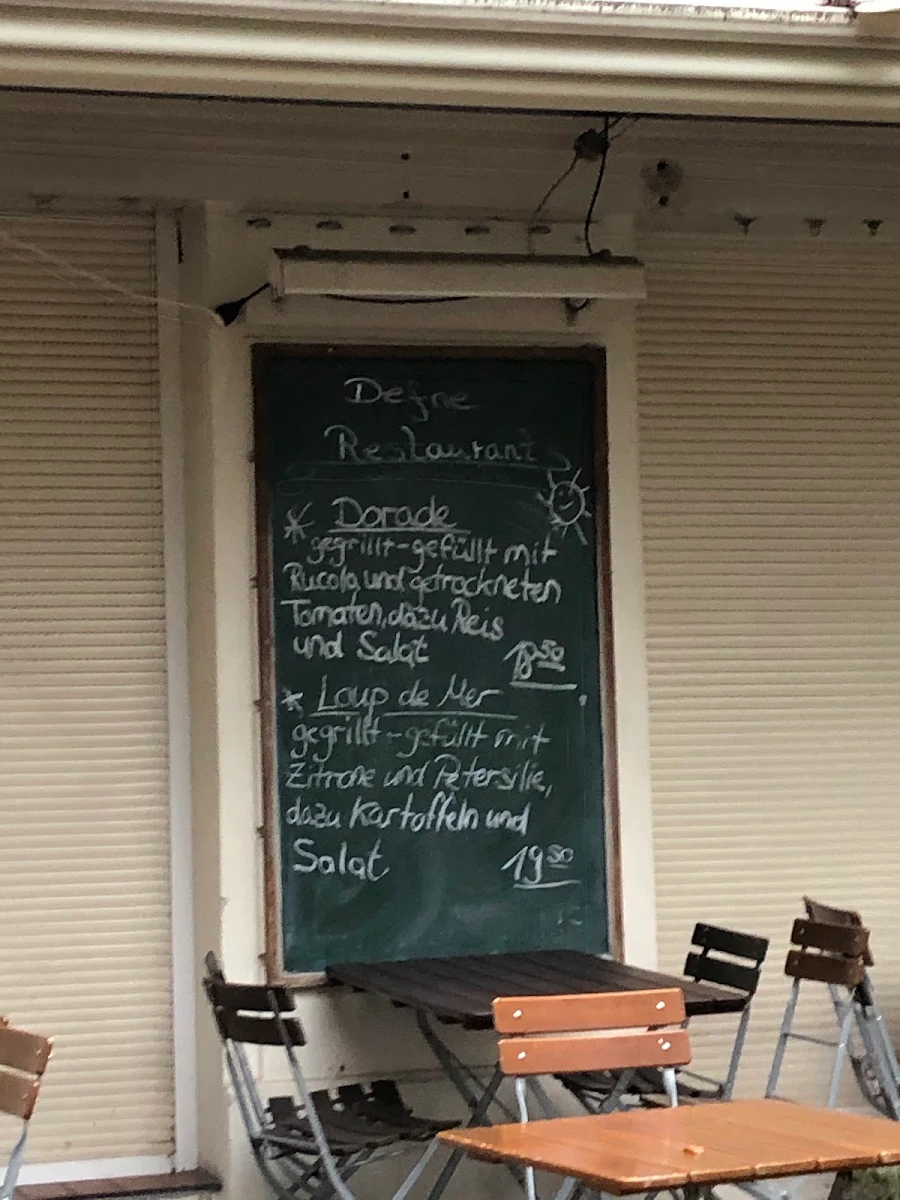 Defne
Restaurant
* Dorade
gegrillt-gefüllt mit
Rucola und getrockneten
Tomaten, dazu Reis
und Salat 18 50
* Loup de Mer
gegrillt-gefüllt mit
Zitrone und Petersilie,
dazu Kartoffeln und
Salat 19 50